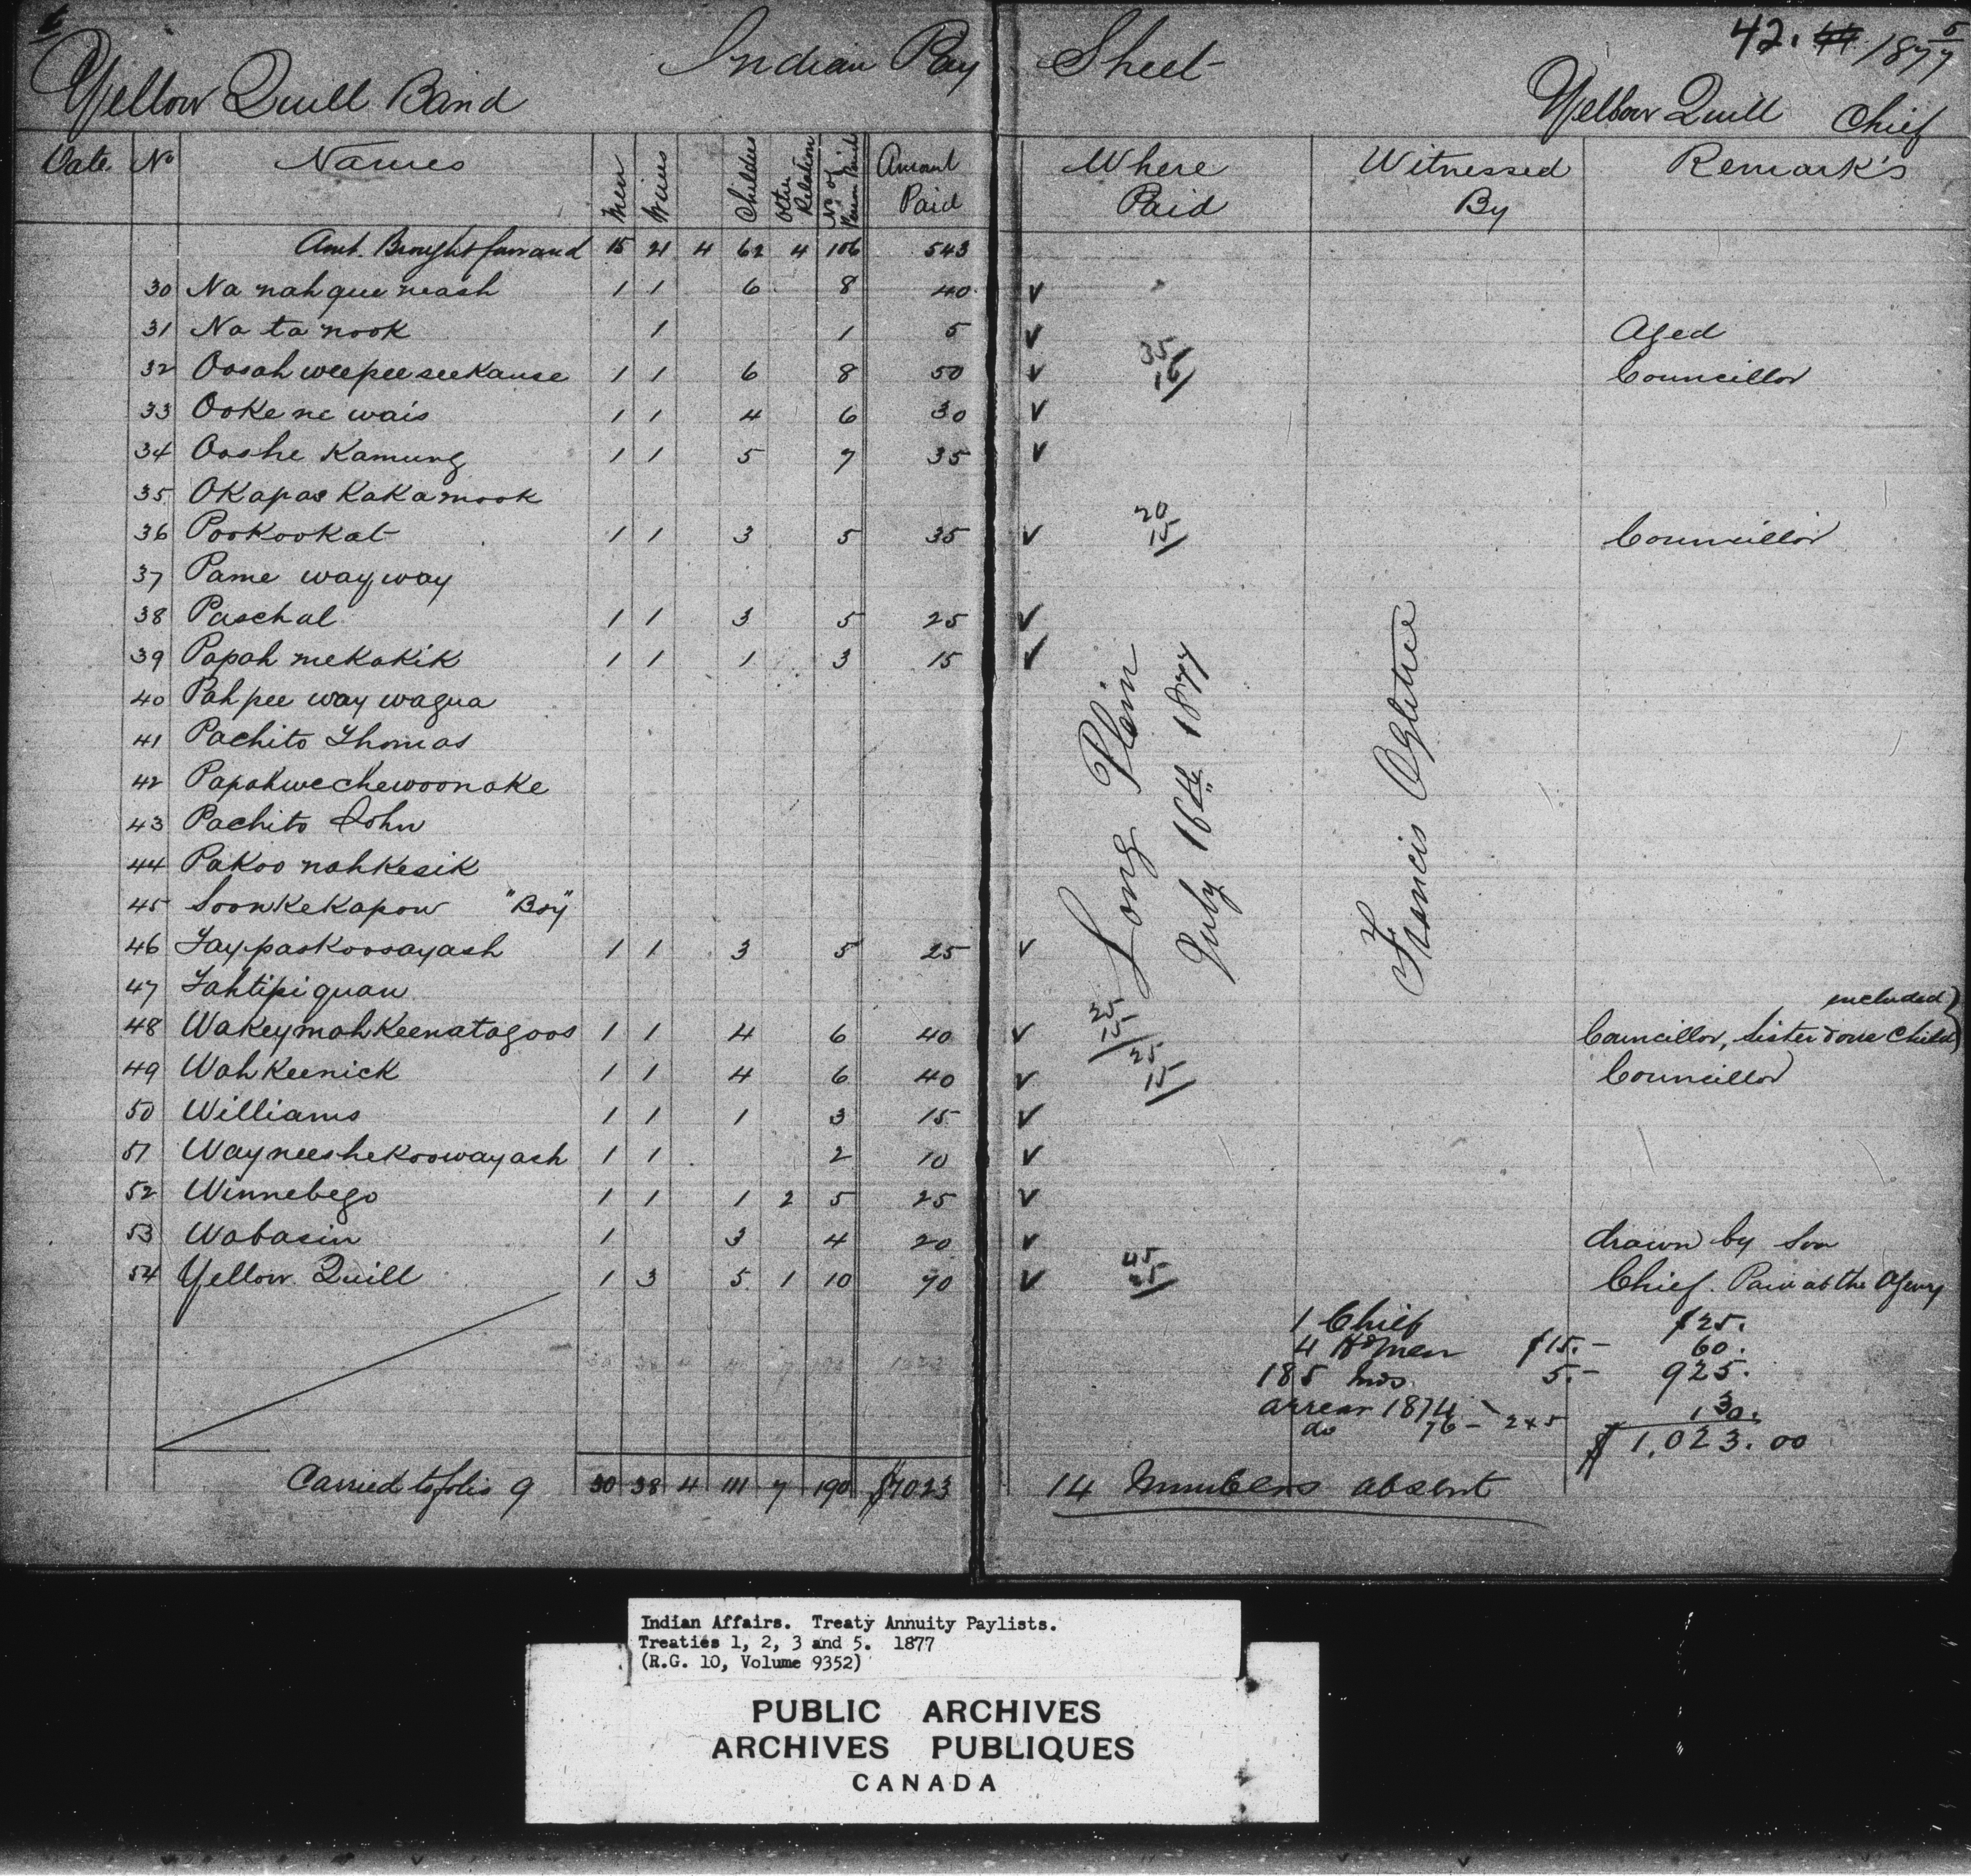 Indian Pay Sheet
42. 1877
Yellow Quill Band
Yellow Quill Chief
Date No Names Men Wives Children Other Relation No of Person Paid Amount Paid Where Paid Witnessed By Remark's
Amt. Brought forward 15 21 4 62 4 106 543
30 Na nah que neash 1 1 6 8 40 v
31 Na ta nook 1 1 5 v Aged
32 Oosah weepee seekause 1 1 6 8 50 v 35 15 Councillor
33 Ooke ne wais 1 1 4 6 30 v
34 Ooshe Kamung 1 1 5 7 35 v
35 OKapas KaKa mook
36 Pookookat 1 1 3 5 35 v 20 15 Councillor
37 Pame way way
38 Paschal 1 1 3 5 25 v
39 Papah mekakik 1 1 1 3 15 v
40 Pah pee way wagua
41 Pachito Thomas
42 Papahwechewoonake
43 Pachito John
44 Pakoo nahkesik
45 Soonkekapow "Boy"
46 Taypaskoosayash 1 1 3 5 25 v
47 Tahtipi quan
48 Wakeymahkeenatagoos 1 1 4 6 40 v 25 15 Councillor, Sister & one Child included
49 Wahkeenick 1 1 4 6 40 v 25 15 Councillor
50 Williams 1 1 1 3 15 v
51 Wayneeshekoowayash 1 1 2 10 v
52 Winnebego 1 1 1 2 5 25 v
53 Wabasin 1 3 4 20 v drawn by Son
54 Yellow Quill 1 3 5 1 10 70 v 45 25 Chief. Paid at the Agency
Long Plain
July 16th 1877
Francis Ogletree
1 Chief $25.
4 Hd men $15.- 60.
185 Inds. 5.- 925.
arrear 1874
do 76 - 2x5 130.
$1,023.00
Carried to folio 9 30 38 4 111 7 190 $1023
14 Numbers absent
Indian Affairs. Treaty Annuity Paylists.
Treaties 1, 2, 3 and 5. 1877
(R.G. 10, Volume 9352)
PUBLIC ARCHIVES
ARCHIVES PUBLIQUES
CANADA